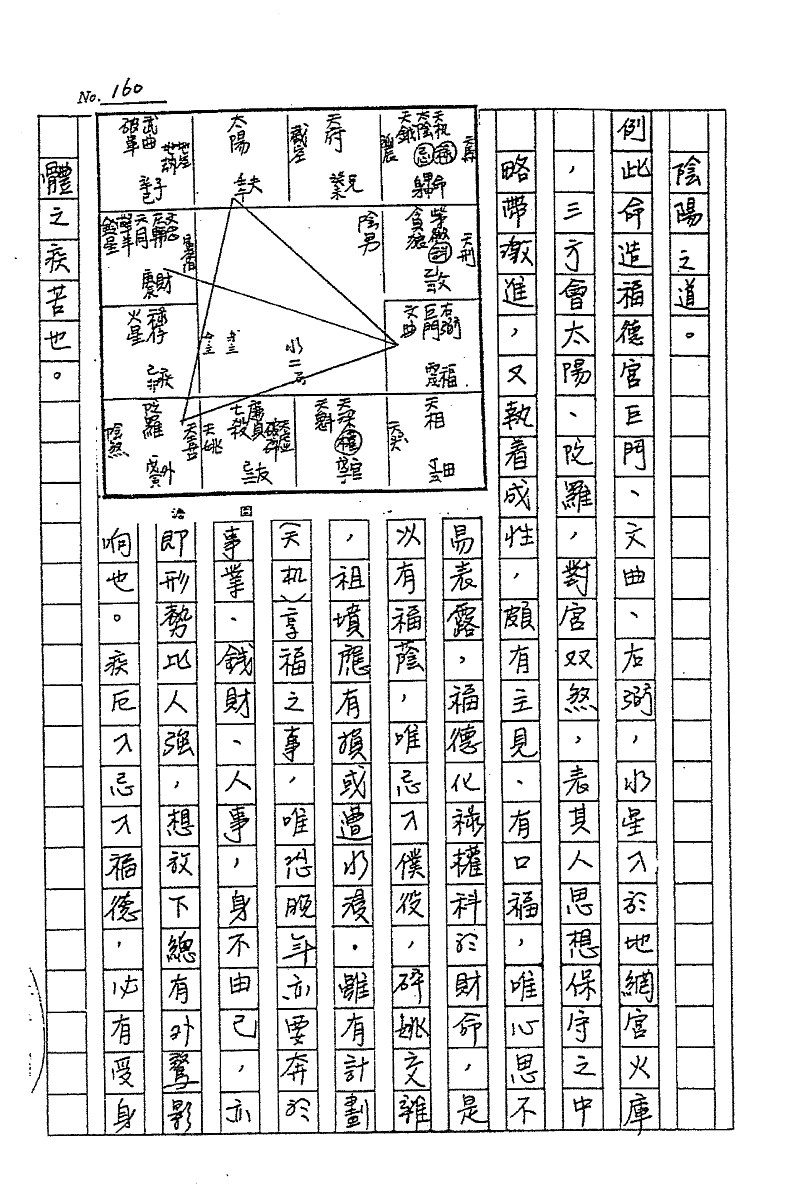 No. 160
陰陽之道。
例此命造福德宮巨門、文曲、右弼，水星入於地網宮火庫
，三方會太陽、陀羅，對宮双煞，表其人思想保守之中
略帶激進，又執着成性，頗有主見、有口福，唯心思不
易表露，福德化祿權科於財命，是
以有福蔭，唯忌入僕役，碎姚交雜
，祖墳應有損或遭水浸。雖有計劃
(天机)享福之事，唯恐晚年亦要奔於
事業、錢財、人事，身不由己，亦
即形勢比人強，想放下總有外騖影
响也。疾厄入忌入福德，必有受身
體之疾苦也。
武曲
破軍
地劫
太陽
天府
天机
太陰
天鉞
祿存
火星
陰男
水二局
貪狼
天刑
右弼
巨門
文曲
陀羅
陰煞
七殺
廉貞
天姚
天梁
天魁
天相
天哭
鈴星